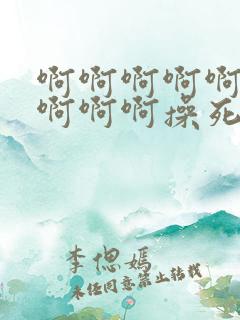 啊啊啊啊啊
啊啊啊操死
李偲嫣
未经同意禁止转载